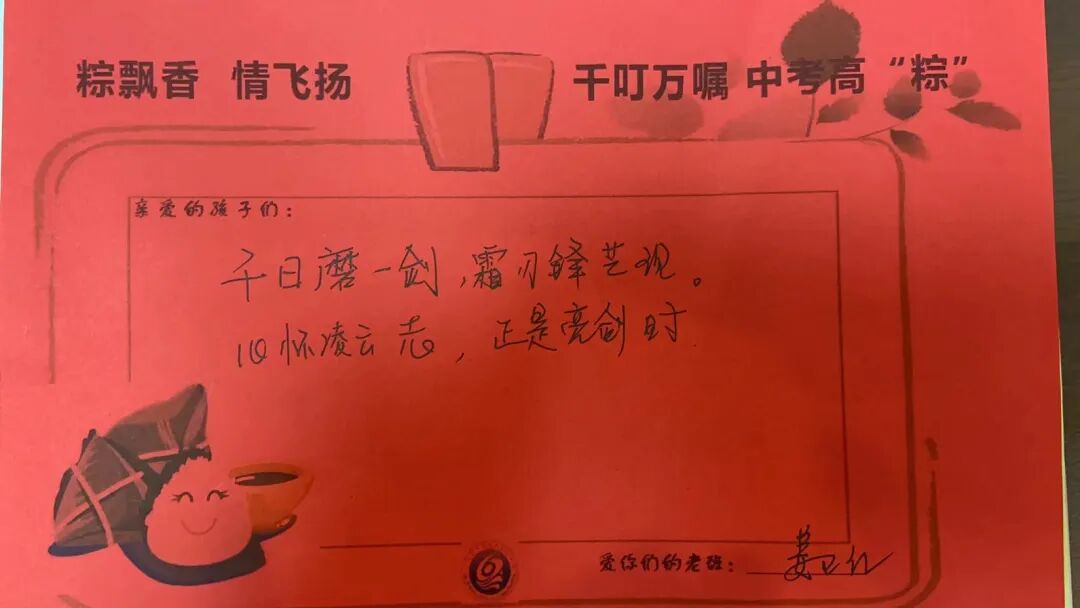 粽飘香 情飞扬 千叮万嘱 中考高“粽”
亲爱的孩子们：
千日磨一剑，霜刃锋芒现。
怀凌云志，正是亮剑时
爱你们的老班：姜卫红